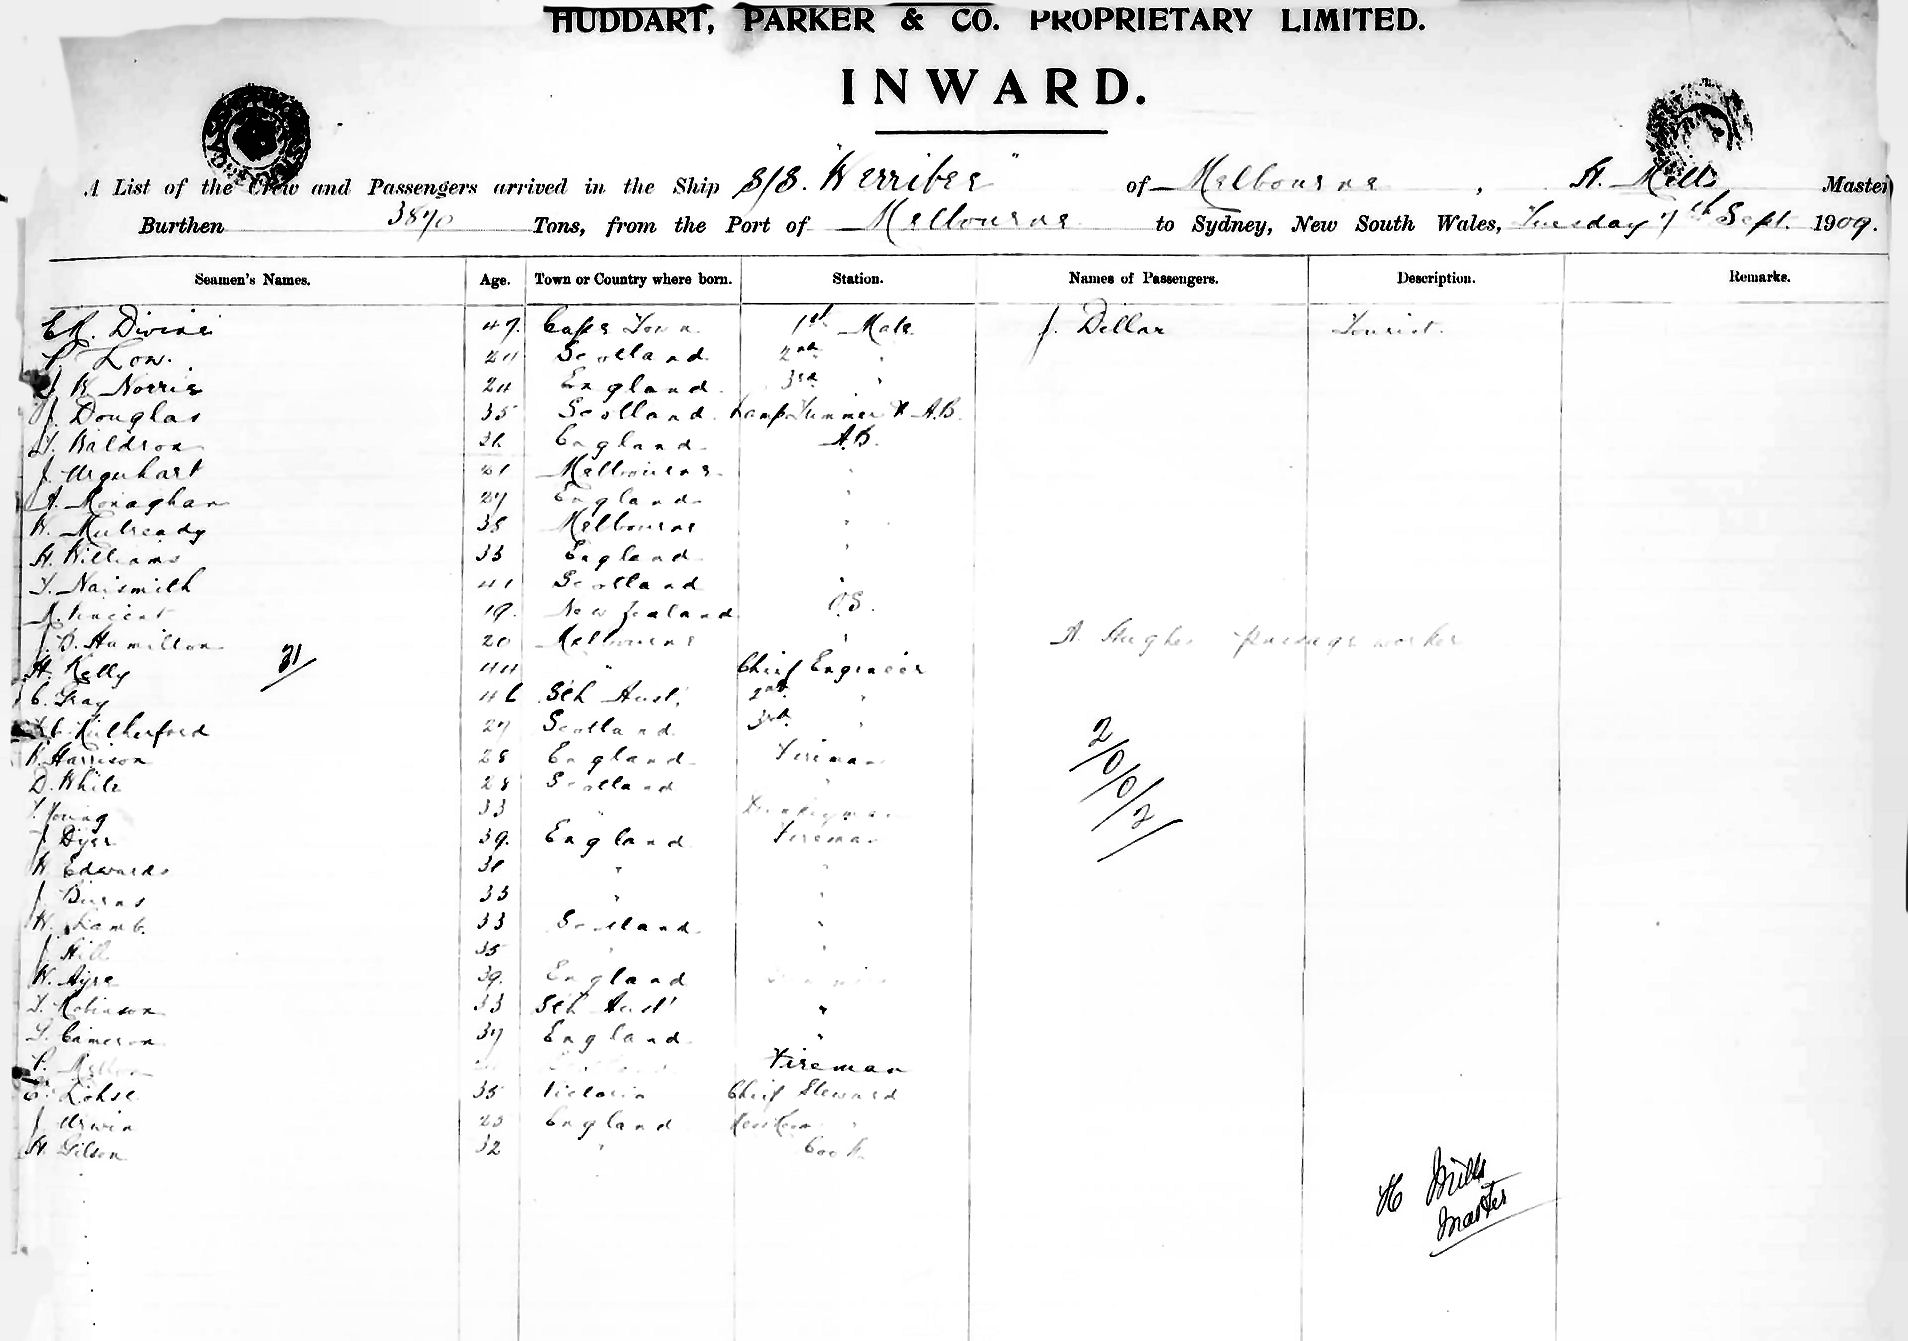 HUDDART, PARKER & CO. PROPRIETARY LIMITED.
INWARD.
A List of the Crew and Passengers arrived in the Ship S/S. "Werribee" of Melbourne, H. Mills Master
Burthen 3870 Tons, from the Port of Melbourne to Sydney, New South Wales, Tuesday 7th Sept. 1909.
Seamen's Names. Age. Town or Country where born. Station. Names of Passengers. Description. Remarks.
Divine 47. Cape Town 1st Mate J. Dellar Tourist.
Low. Scotland 2nd "
J. W. Norris 24 England 3rd "
J. Douglas 35 Scotland Lamp Trimmer & A.B.
T. Waldron England A.B.
J. Urquhart 21 Melbourne "
A. Monaghan 27 England "
W. Mulready 35 Melbourne "
H. Williams 33 England "
T. Naismith 41 Scotland "
Vincent 19. New Zealand O.S.
J. B. Hamilton 20 Melbourne " A. Hughes passage worker
H. Kelly 31/ 44 " Chief Engineer
C. Gray 46 Sth Aust. 2nd "
Rutherford 27 Scotland 3rd "
W. Harrison 28 England Fireman
D. White 28 Scotland "
T. Young 33 " Donkeyman
2/0/0/2/
J. Dyer 39. England Fireman
W. Edwards " "
J. Burns 33 " "
W. Lamb. 33 Scotland "
J. Hill 35 " "
W. Ayre 39. England
T. Robinson 33 Sth Aust "
Cameron 37 England "
Fireman
Lohse 35 Victoria Chief Steward
J. Urwin 25 England "
H. Gilson 32 " Cook
H Mills
Master